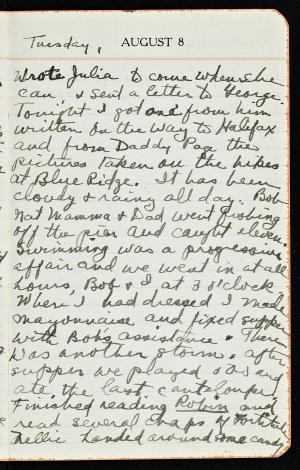 Tuesday,
AUGUST 8
Wrote Julia to come when she
can, & sent a letter to George.
Tonight I got one from him
written on the way to Halifax
and from Daddy Pag the
pictures taken on the hikes
at Blue Ridge. It has been
cloudy & rainy all day. Bob
Nat Mamma & Dad went fishing
off the pier and caught eleven.
Swimming was a progressive
affair and we went in at all
hours, Bob & I, at 3 o'clock.
When I had dressed I made
mayonnaise and fixed supper
with Bob's assistance. There
was another storm. After
supper we played and
ate the last cantaloupe.
Finished reading Robin and
read several chaps of Fortitude
Nellie handed around some candy